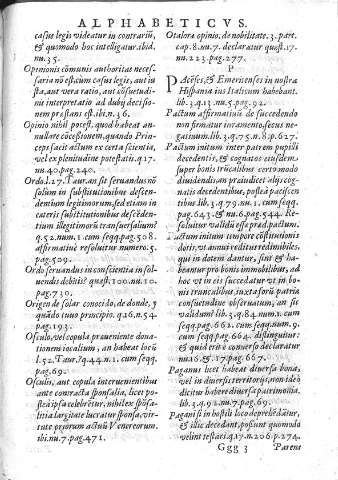 ALPHABETICVS.
casus legis videatur in contrariũ,
& quomodo hoc intelligatur. ibid.
nu. 35.
Openionis cõmunis authoritas neces-
saria nõ est, cum casus legis, aut iu
sta, aut vera ratio, aut cõsuetudi-
nis interpretatio ad dubij decisio-
nem præstans est. ibi. n. 36.
Opinio nihil potest, quod habeat an-
nullare cõcessionem, quando Prin-
ceps facit actum ex certa scientia,
vel ex plenitudine potestatis. q. 17.
nu. 40. pag. 240.
Ordo l. 27. Taur. an sit seruandus nõ
solum in substitutionibus descen-
dentium legitimorum, sed etiam in
cæteris substitutionibus descẽden-
tium illegitimorũ trasuersalium?
q. 52. num. 1. cum seqq. pag. 508.
affirmatiuè resoluitur numero. 5.
pag. 509.
Ordo seruandus in conscientia in sol-
uendis debitis? quæst. 100. nu. 10.
pag. 730.
Origen de solar conocido, de donde, y
quãdo tuuo principio. q. 16. n. 54
pag. 193.
Osculo, vel copula præueniente dona-
tionem iocalium, an habeat locũ
l. 52. Taur.? q. 44. n. 1. cum seqq.
pag. 69.
Osculis, aut copula interuenientibus
ante contracta sponsalia, licet po-
stea ipsa celebrẽtur, nihil ex spõsa-
litia largitate lucratur sponsa, vir-
tute priorum actuũ Venereorum.
ibi. nu. 7. pag. 471.
Otalora opinio, de nobilitate. 3. part.
cap. 8. nu. 7. declaratur quæst. 17.
nu. 223. pag. 277.
P
PAcẽses, & Emeritenses in nostra
Hispania ius Italicum habebant.
lib. 3. q. 13. nu. 5. pag. 92.
Pactum affirmatiuũ de succedendo
non firmatur iuramento, secus ne-
gatiuum. lib. 3. q. 75. n. 8. p. 627.
Pactum initum inter patrem pupilli
decedentis, & cognatos eiusdem,
super bonis truncalibus certo modo
diuidendis, an præiudicet alijs cog-
natis decedentibus, postea pacisce
tibus lib. 3. q. 79. nu. 1. cum seqq.
pag. 643. & nu. 6. pag. 544. Re-
soluitur validũ esse præd. pactum.
Pactum initum tempore cõstitutionis
dotis, vt annui reditus redimibiles,
qui in dotem dantur, sint & ha-
beantur pro bonis immobilibus, ad
hoc vt in eis succedatur vt in bo-
nis truncalibus, iuxta forũ patriæ
consuetudine obseruatum, an sit
validum? lib. 3. q. 84. num. 1. cum
seqq. pag. 662. cum seqq. numero. 9.
cum seqq. pag. 664. distinguitur:
& quid tuẽ è conuerso declaratur
nu. 16. & 17. pag. 667.
Paganus licet habeat diuersa bona,
vel in diuersis territorijs, non ideò
dicitur habere diuersa patrimonia.
lib. 3. q. 90. nu. 7. pag. 69.
Pagani si in hostili loco deprehẽdãtur,
& illic decedant, possunt quomodo
velint testari. q. 17. n. 206. p. 274.
Ggg 3 Parens